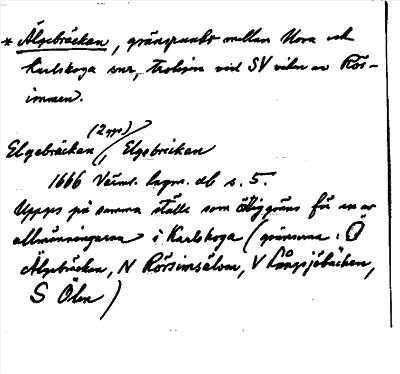 * Älgebräckan, gränspunkt mellan Nora och
Karlskoga snr, troligen vid SV viken av Rös-
immen.
(2 ggr)
Elgebräckan, Elgebrickan
1666 Värml. lagm. db s. 5.
Uppges på samma ställe som östlig gräns för en av
allmänningarna i Karlskoga (gränserna: Ö
Älgebräckan, N Rösimsälven, V Långsjöbäcken,
S Ölen)